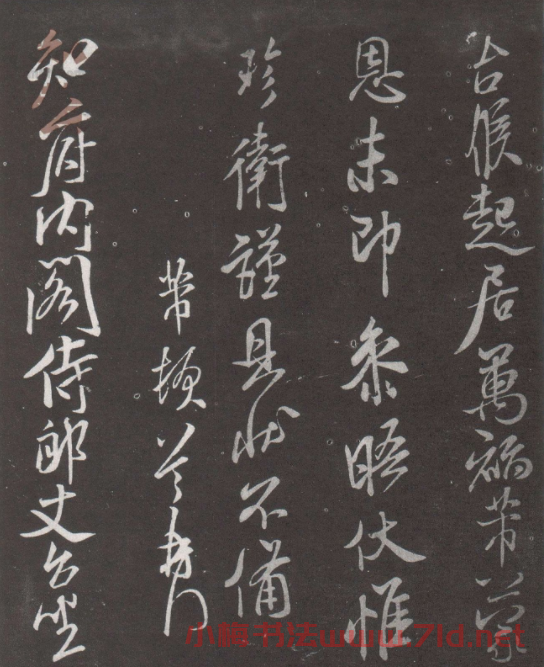 台候起居萬福芾蒙
恩未即參晤伏惟
珍衛謹具狀不備
芾頓首再拜
知府內閣侍郎丈台坐
书法www.7ld.net